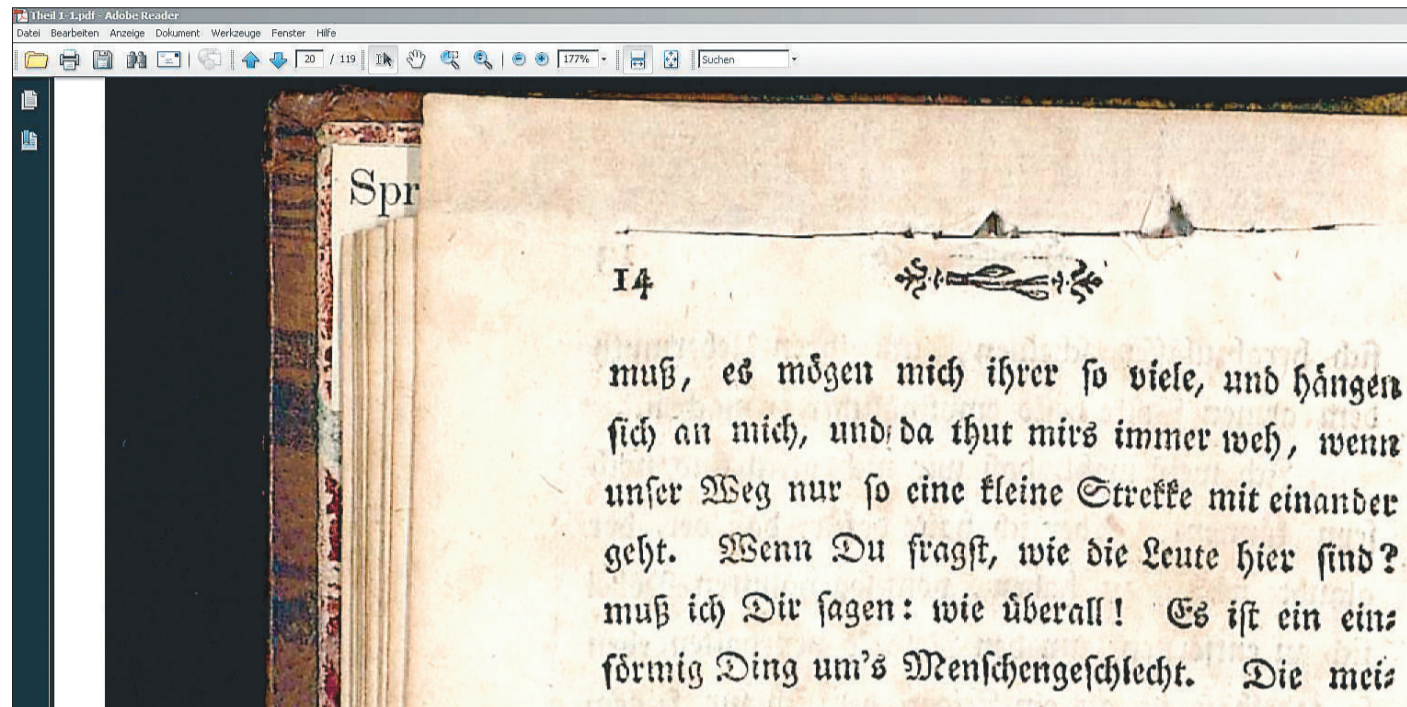 Theil 1-1.pdf - Adobe Reader
Datei Bearbeiten Anzeige Dokument Werkzeuge Fenster Hilfe
20 / 119 177% Suchen
Spr
14
muß, es mögen mich ihrer ſo viele, und hängen
ſich an mich, und da thut mirs immer weh, wenn
unſer Weg nur ſo eine kleine Strekke mit einander
geht. Wenn Du fragſt, wie die Leute hier ſind?
muß ich Dir ſagen: wie überall! Es iſt ein ein⸗
förmig Ding um's Menſchengeſchlecht. Die mei⸗